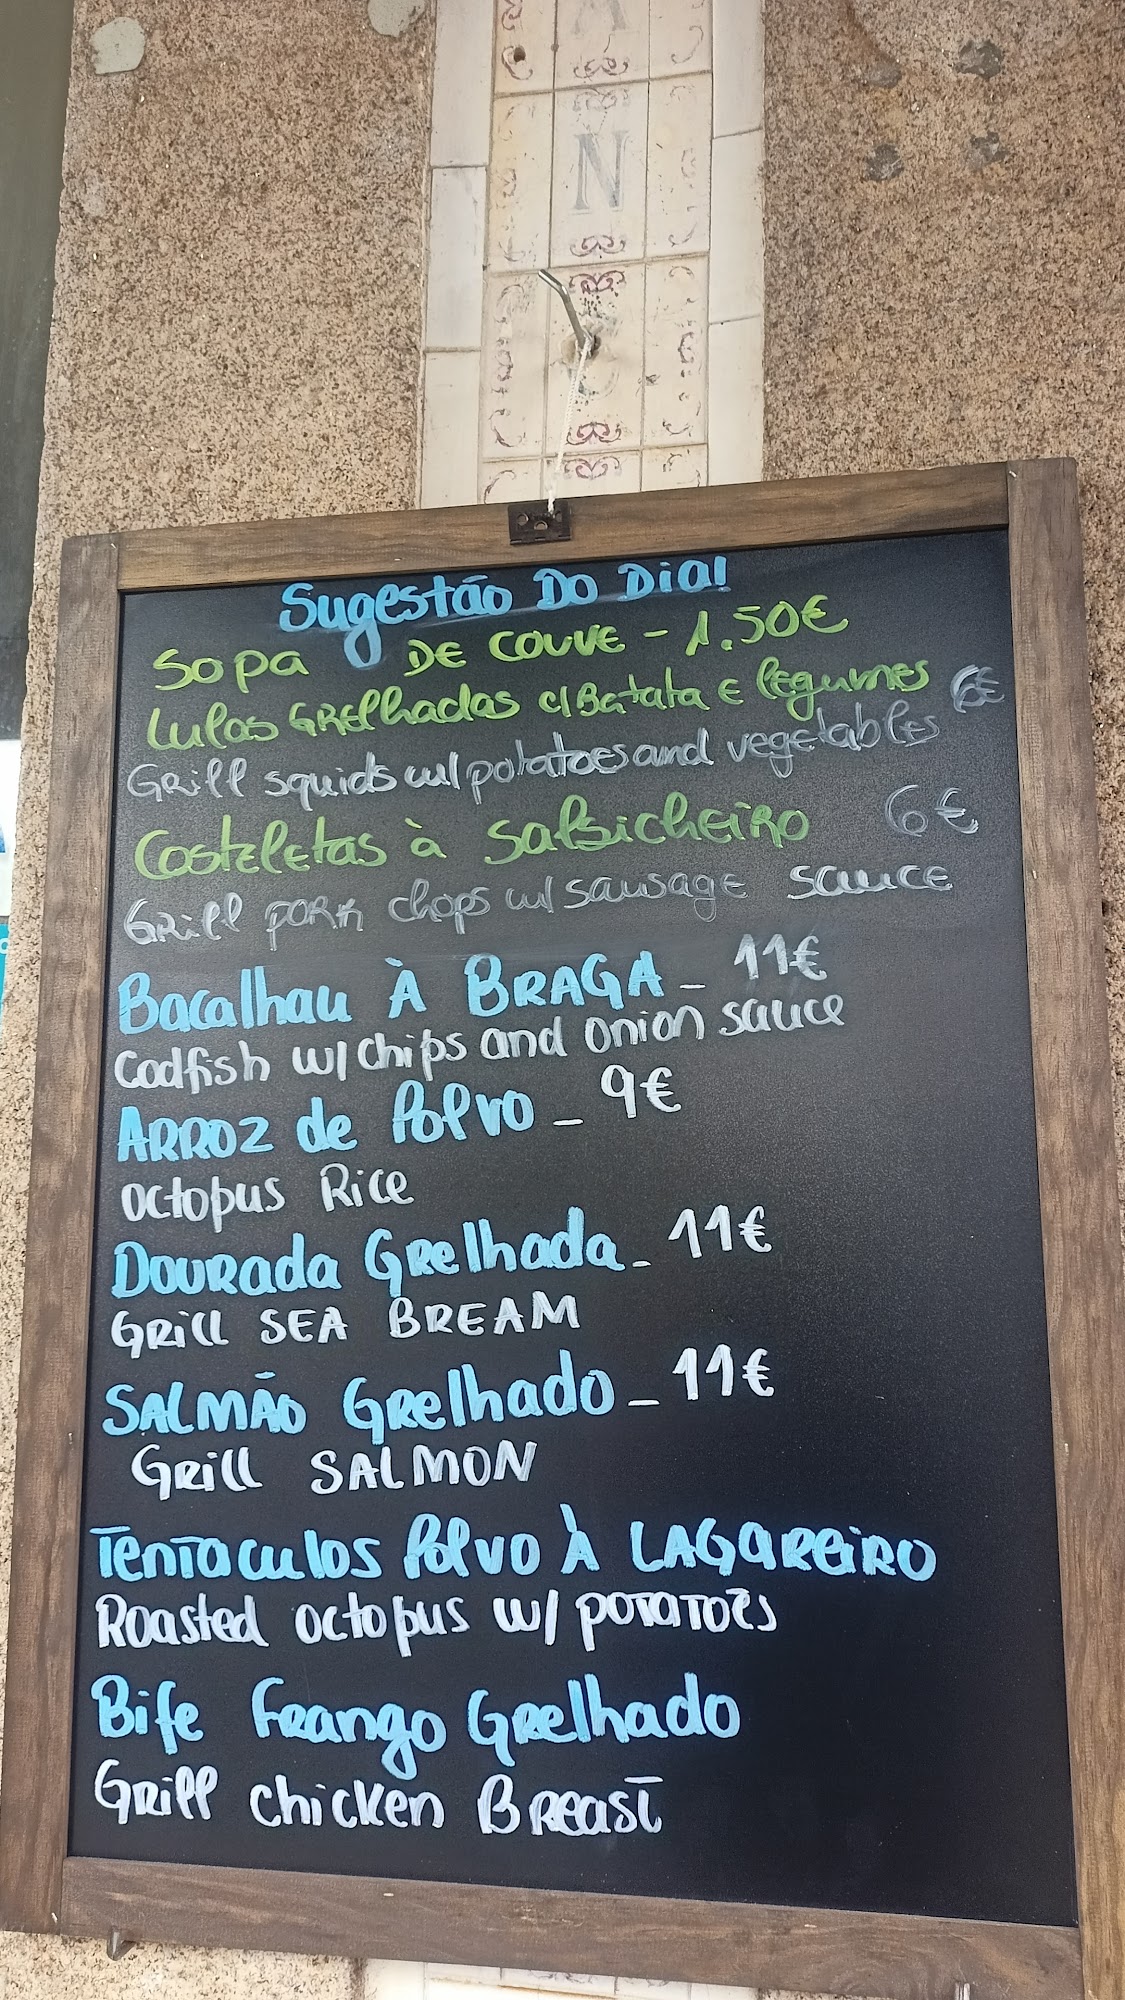 A
N
Sugestão Do Dia!
Sopa DE COUVE - 1.50€
Lulas GRelhadas c/ Batata E legumes 6€
GRill squids w/ potatoes and vegetables
Costeletas à Salsicheiro 6€
GRill PORK chops w/ sausage sauce
Bacalhau À BRAGA - 11€
Codfish w/ chips and onion sauce
ARROZ de Polvo - 9€
octopus Rice
DOURada GRelhada - 11€
GRill SEA BREAM
SALMÃO GRelhado - 11€
GRill SALMON
Tentaculos Polvo À LAGAReiRO
Roasted octopus w/ potatoes
Bife Frango GRelhado
GRill chicken BReast